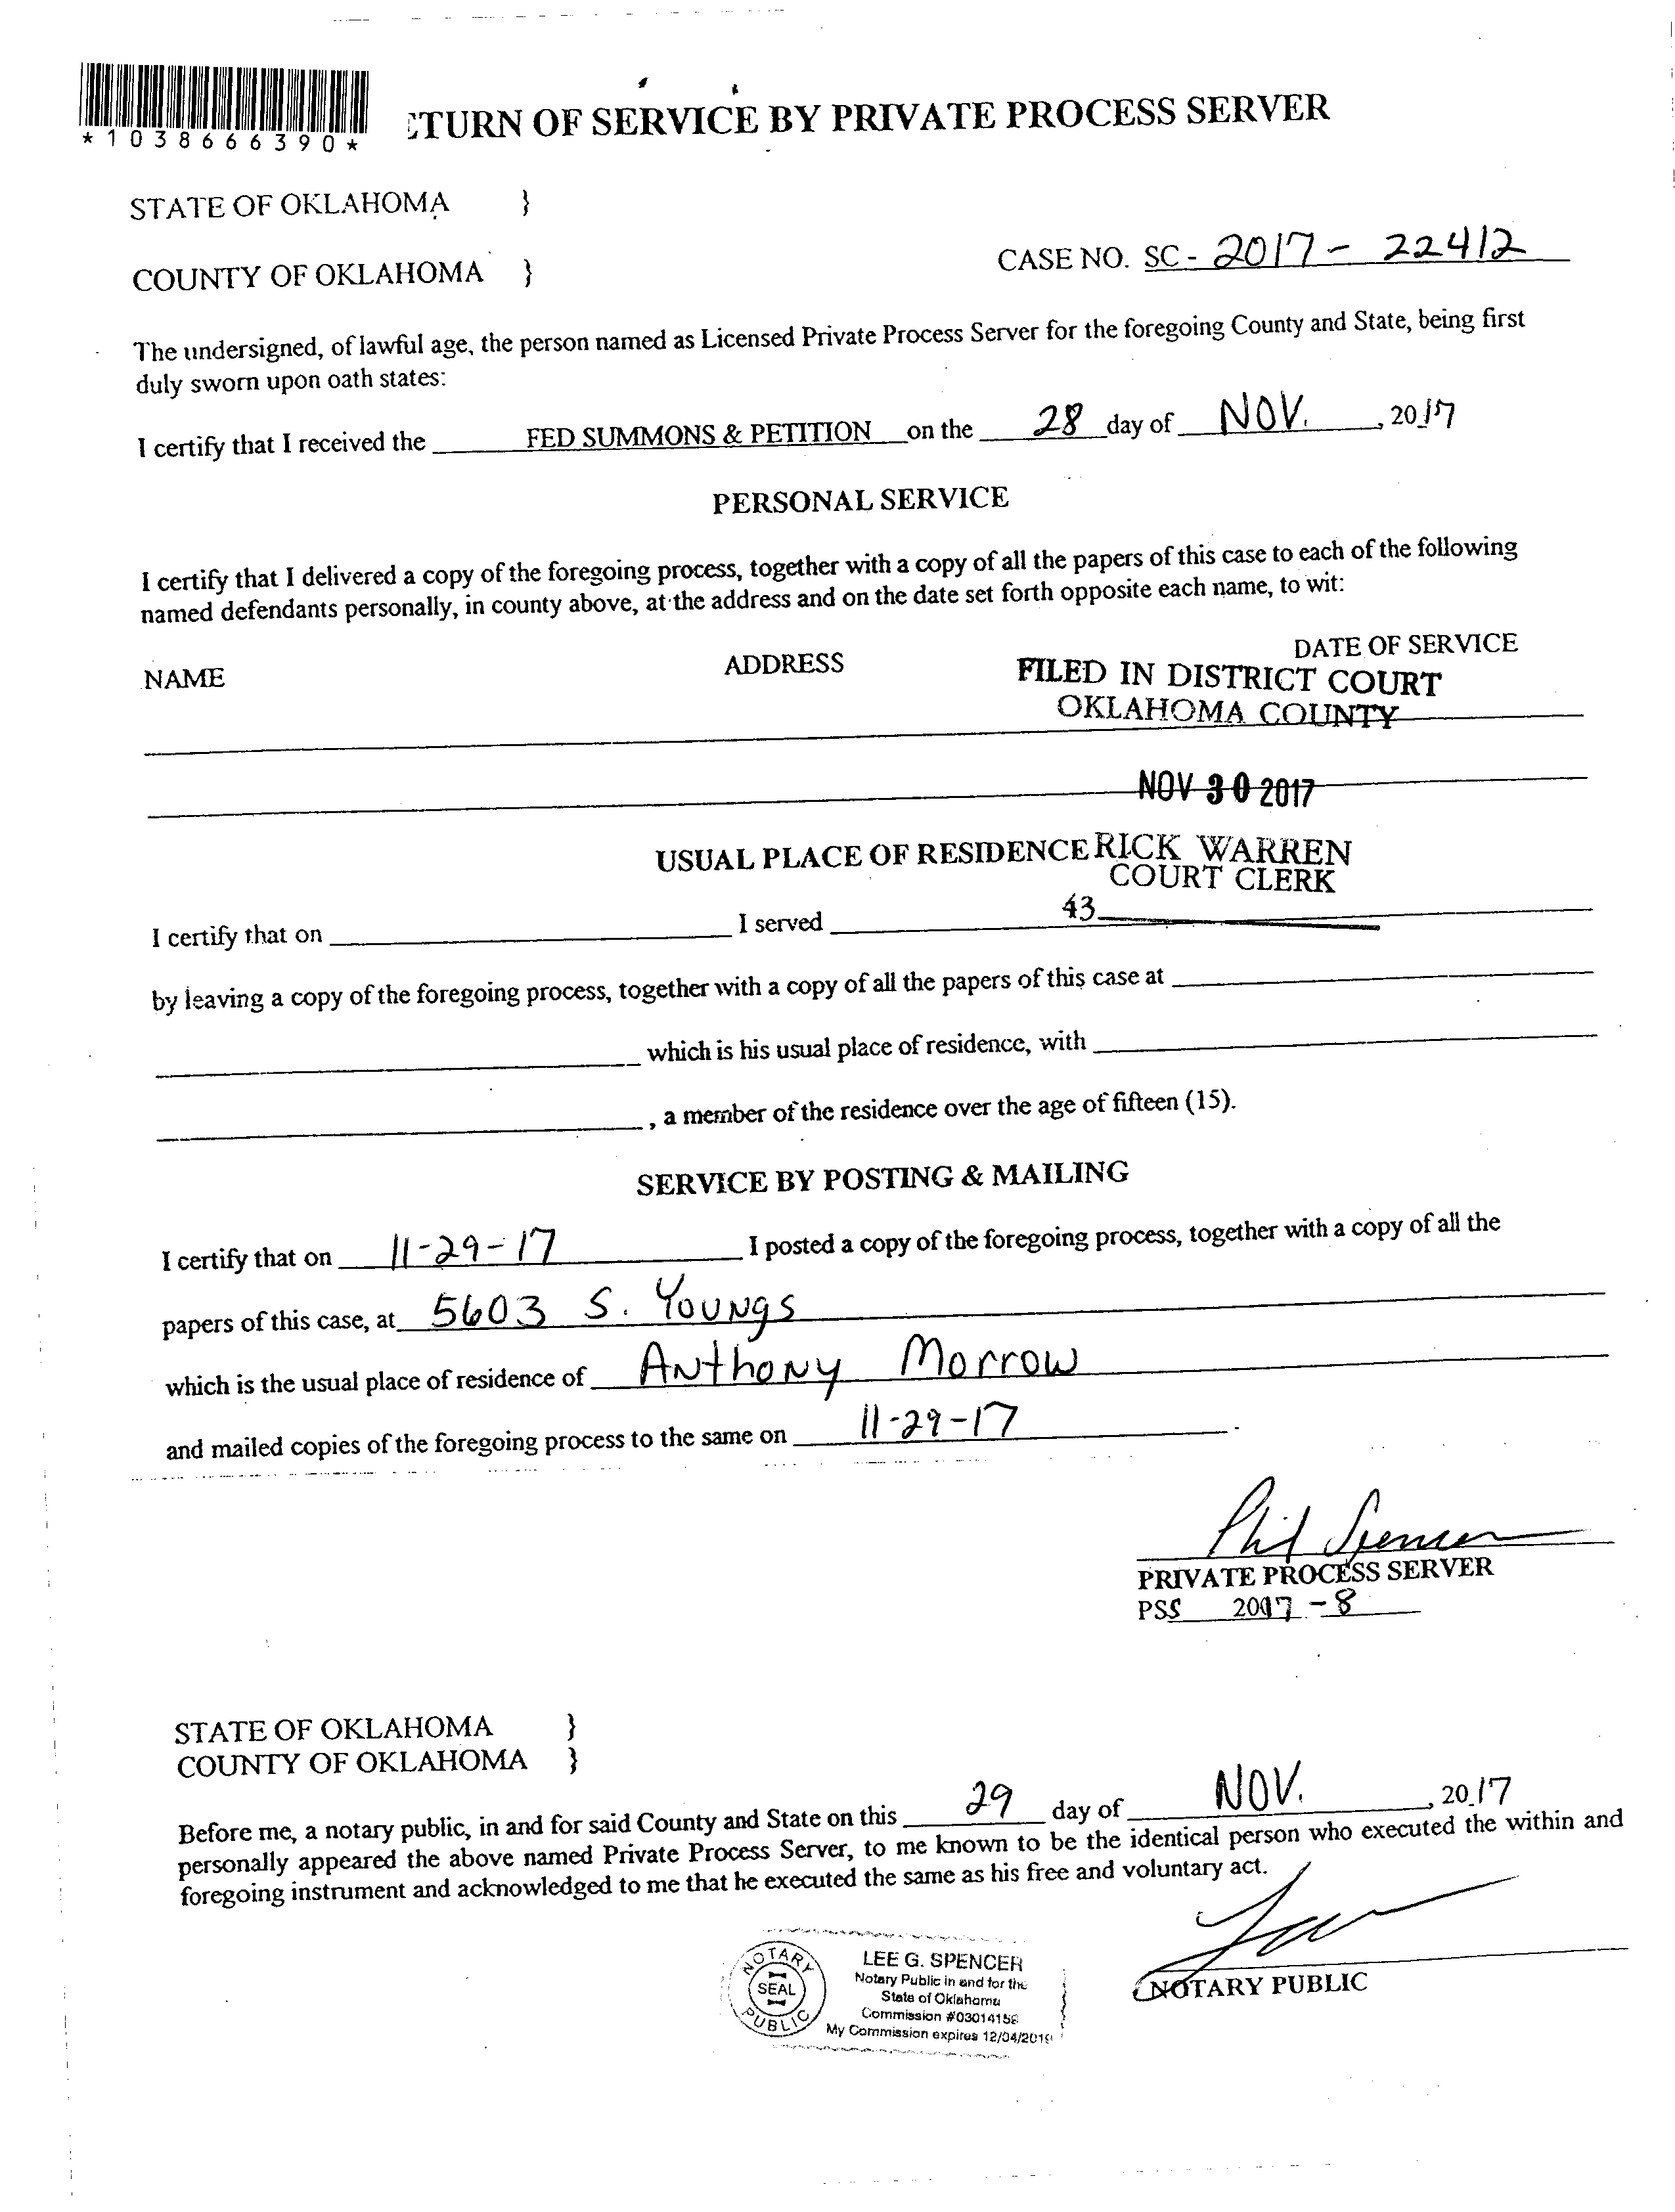 *1038666390*
ETURN OF SERVICE BY PRIVATE PROCESS SERVER
STATE OF OKLAHOMA }
CASE NO. SC- 2017- 22412
COUNTY OF OKLAHOMA }
The undersigned, of lawful age, the person named as Licensed Private Process Server for the foregoing County and State, being first
duly sworn upon oath states:
I certify that I received the FED SUMMONS & PETITION on the 28 day of NOV. , 2017
PERSONAL SERVICE
I certify that I delivered a copy of the foregoing process, together with a copy of all the papers of this case to each of the following
named defendants personally, in county above, at the address and on the date set forth opposite each name, to wit:
NAME ADDRESS DATE OF SERVICE
FILED IN DISTRICT COURT
OKLAHOMA COUNTY
NOV 30 2017
USUAL PLACE OF RESIDENCE
RICK WARREN
COURT CLERK
43
I certify that on I served
by leaving a copy of the foregoing process, together with a copy of all the papers of this case at
which is his usual place of residence, with
, a member of the residence over the age of fifteen (15).
SERVICE BY POSTING & MAILING
I certify that on 11-29-17 I posted a copy of the foregoing process, together with a copy of all the
papers of this case, at 5603 S. Youngs
which is the usual place of residence of Anthony Morrow
and mailed copies of the foregoing process to the same on 11-29-17 .
Phil Spencer
PRIVATE PROCESS SERVER
PSS 2017-8
STATE OF OKLAHOMA }
COUNTY OF OKLAHOMA }
Before me, a notary public, in and for said County and State on this 29 day of NOV. , 2017
personally appeared the above named Private Process Server, to me known to be the identical person who executed the within and
foregoing instrument and acknowledged to me that he executed the same as his free and voluntary act.
NOTARY PUBLIC
SEAL
LEE G. SPENCER
Notary Public in and for the
State of Oklahoma
Commission #03014158
My Commission expires 12/04/2019
NOTARY PUBLIC